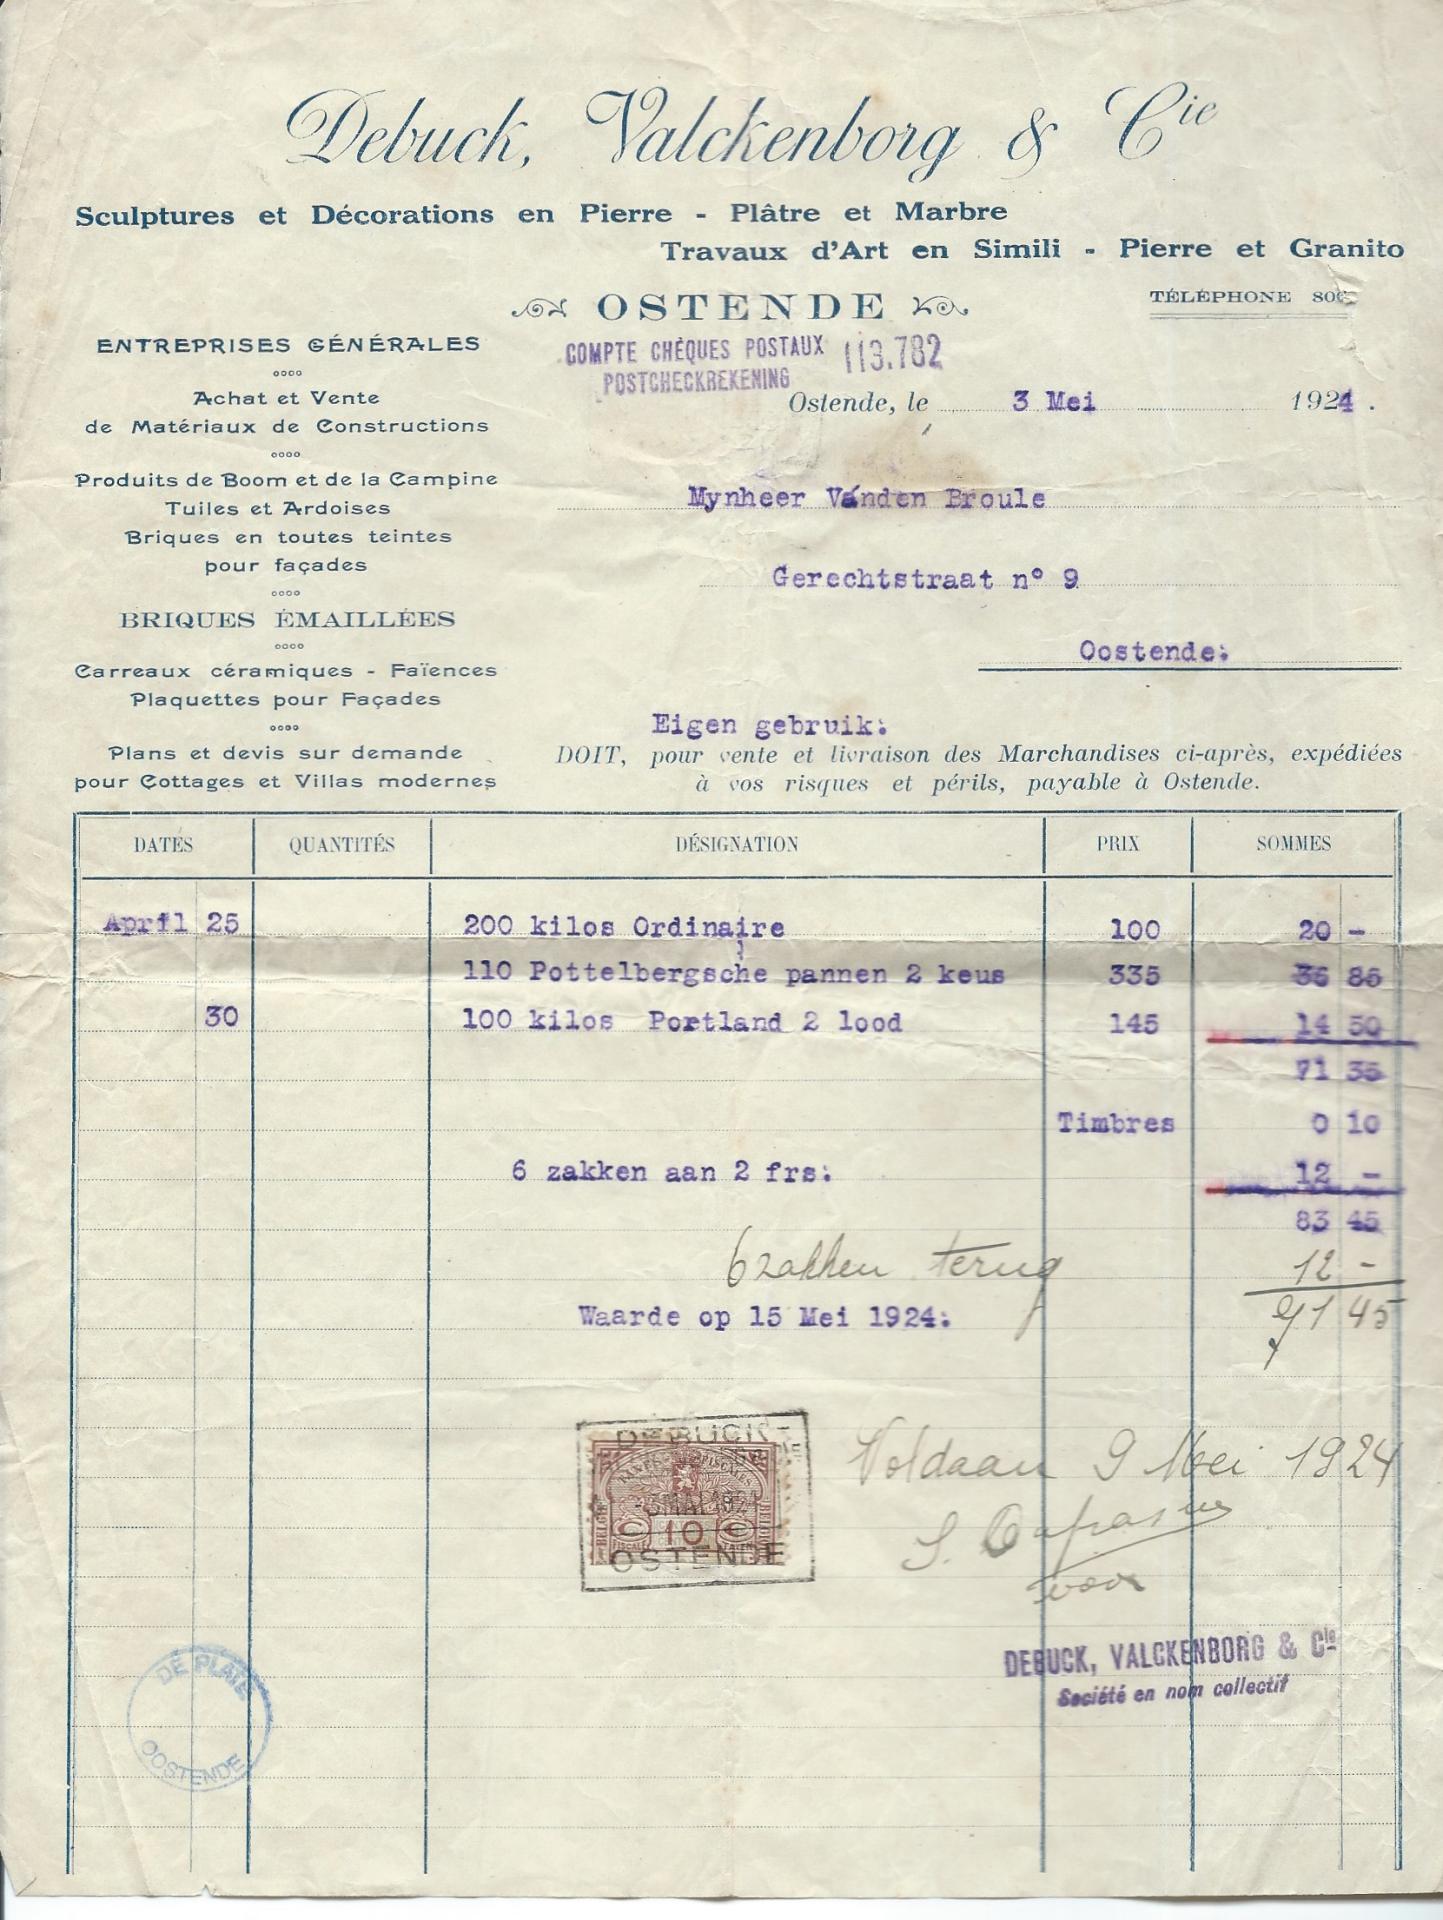 Debuck, Valckenborg & Cie
Sculptures et Décorations en Pierre - Plâtre et Marbre
Travaux d'Art en Simili - Pierre et Granito
OSTENDE
TÉLÉPHONE
COMPTE CHÈQUES POSTAUX 113.782
POSTCHECKREKENING
Ostende, le 3 Mei 1924.
ENTREPRISES GÉNÉRALES
Achat et Vente
de Matériaux de Constructions
Produits de Boom et de la Campine
Tuiles et Ardoises
Briques en toutes teintes
pour façades
BRIQUES ÉMAILLÉES
Carreaux céramiques - Faïences
Plaquettes pour Façades
Plans et devis sur demande
pour Cottages et Villas modernes
Mynheer Vanden Broule
Gerechtstraat n° 9
Oostende:
Eigen gebruik:
DOIT, pour vente et livraison des Marchandises ci-après, expédiées
à vos risques et périls, payable à Ostende.
DATES QUANTITÉS DÉSIGNATION PRIX SOMMES
April 25 200 kilos Ordinaire 100 20 -
110 Pottelbergsche pannen 2 keus 335 36 85
30 100 kilos Portland 2 lood 145 14 50
71 35
Timbres 0 10
6 zakken aan 2 frs: 12 -
83 45
6 zakken terug 12 -
71 45
Waarde op 15 Mei 1924:
DEBUCK
10
OSTENDE
Voldaan 9 Mei 1924
voor
DEBUCK, VALCKENBORG & Cie
Société en nom collectif
DE PLATE
OOSTENDE